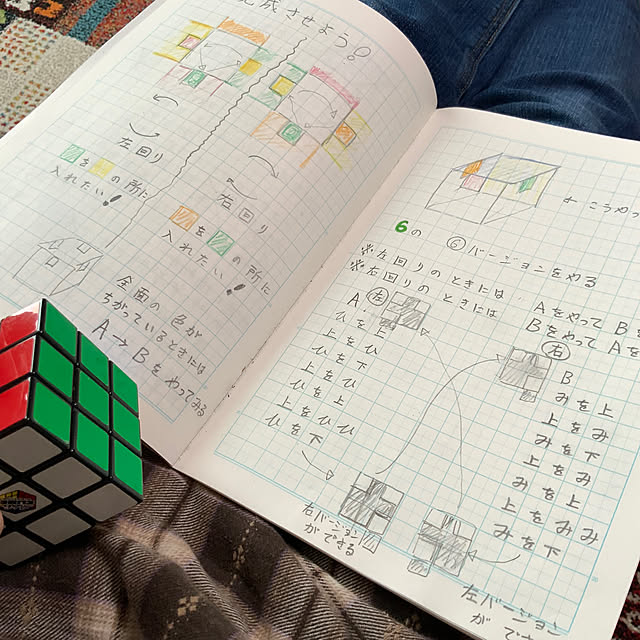 成させよう!
左回り
を の所に
入れたい!
右回り
を の所に
入れたい!
全面の色が
ちがっているときには
A→Bをやってみる
← こうやっ
6の ⑥バージョンをやる
※左回りのときには、Aをやって B
※右回りのときには Bをやって Aを
A 左
ひを上
上をひ
ひを下
上をひ
ひを上
上をひひ
ひを下
右バージョン
ができる
右
B
みを上
上をみ
みを下
上をみ
みを上
上をみみ
みを下
左バージョン
が